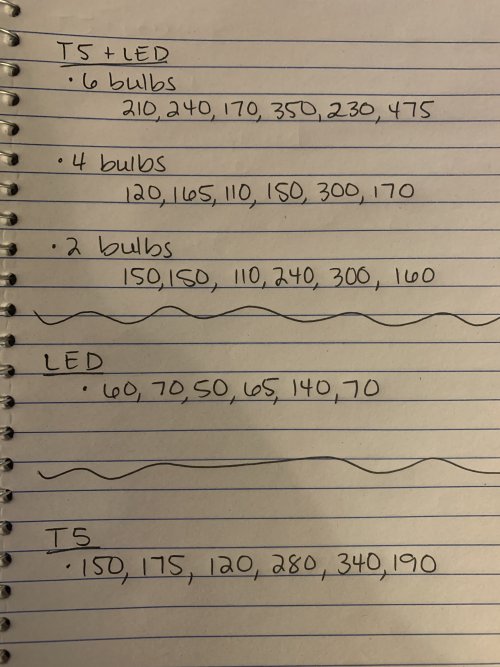 T5 + LED
· 6 bulbs
210, 240, 170, 350, 230, 475
· 4 bulbs
120, 165, 110, 150, 300, 170
· 2 bulbs
150, 150, 110, 240, 300, 160
LED
· 60, 70, 50, 65, 140, 70
T5
· 150, 175, 120, 280, 340, 190